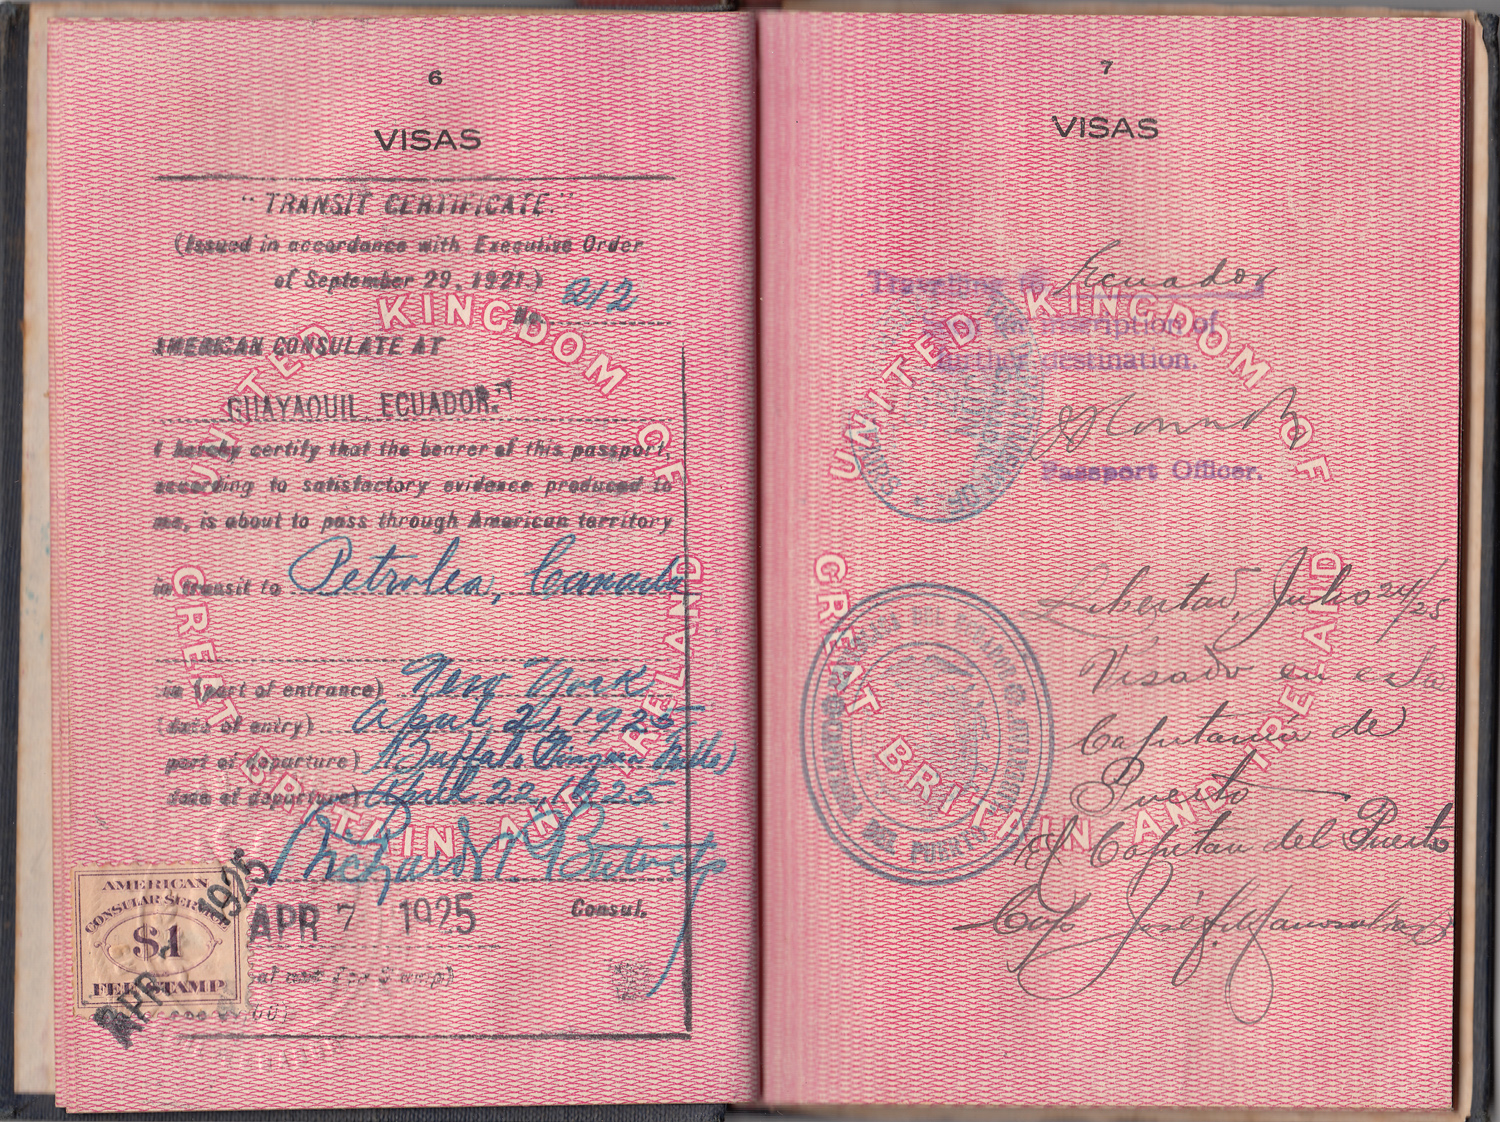 6
VISAS
"TRANSIT CERTIFICATE."
(Issued in accordance with Executive Order
of September 29, 1921.)
No. 212
AMERICAN CONSULATE AT
GUAYAQUIL, ECUADOR.
I hereby certify that the bearer of this passport,
according to satisfactory evidence produced to
me, is about to pass through American territory
in transit to Petrolea, Canada
in (port of entrance) New York
(date of entry) April 21, 1925
port of departure) Buffalo (Niagara Falls)
date of departure) April 22 1925
APR 7 1925
Consul.
AMERICAN
CONSULAR SERVICE
$1
FEE STAMP
APR 1925
UNITED KINGDOM OF
GREAT BRITAIN AND IRELAND
7
VISAS
Travelling to Ecuador
inscription of
further destination.
Passport Officer.
UNITED KINGDOM OF
GREAT BRITAIN AND IRELAND
Libertad, Julio 24/25
Visado en esta
Capitanía de
Puerto
El Capitan del Puerto
DEL PUERTO